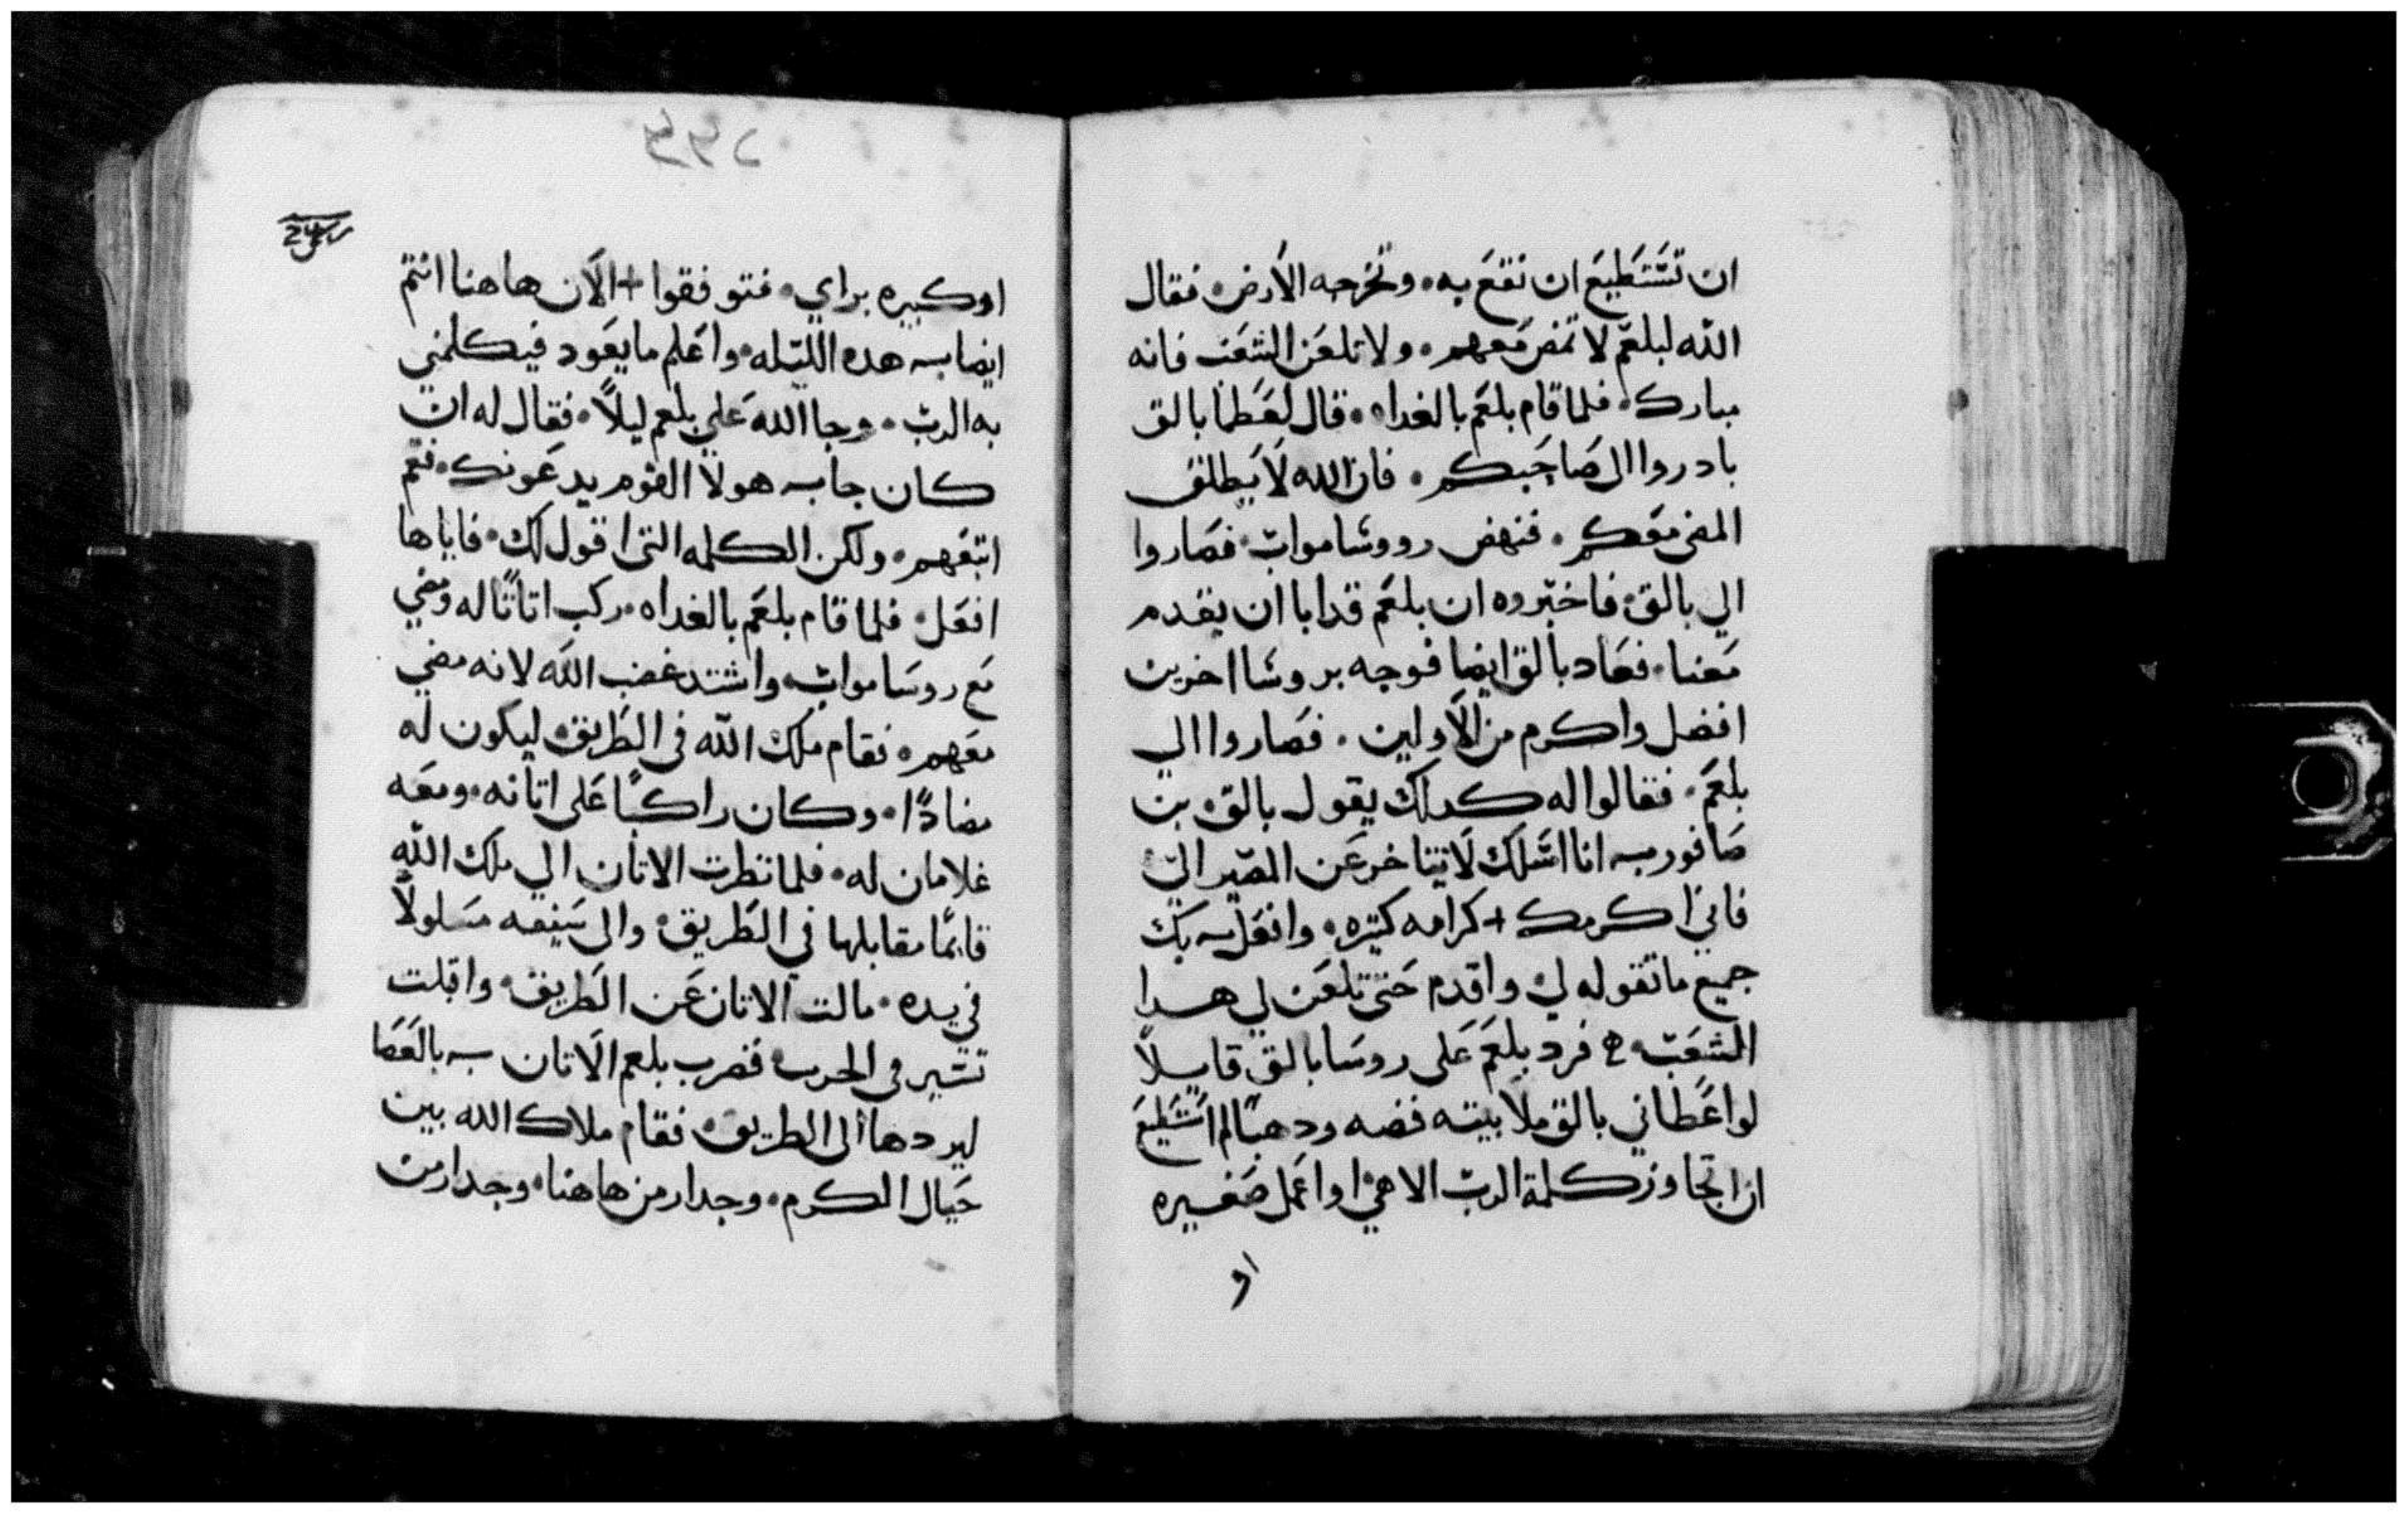 ان تَسْتَطيعَ ان نقعَ به. وتخرجه الأرض. فقال
الله لبلعَم لا تمض مَعهم. ولا تلعَن الشعَب فانه
مبارك. فلما قام بلعَم بالغداه. قال لعَظما بالق
بادروا الى صَاحَبكم. فان الله لا يَطلق
المضى معَكم. فنهض رووسَا مواب. فصَاروا
الي بالق. فاخبروه ان بلعَم قد ابا ان يقدم
مَعنا. فعَاد بالق ايضا فوجه بروسَا اخرين
افضل واكرم من الأولين. فصَاروا الي
بلعَم. فقالوا له كدلك يقول بالق بن
صَافور انا اسَلك لا تتاخر عَن المصَير اليّ
فاني اكرمك + كرامه كتيره. وافعَل بك
جميع ما تقوله لي واقدم حَتى تلعَن لي هدا
الشعَب. فرد بلعَم عَلى روسَا بالق قايلاً
لو اعَطاني بالق ملا بيته فضه ودهبًا لم اسَتطيعَ
ان اتجاوز كلمة الرب الاهي او اعَمل صَغيره
او
٢٤٤
او كبيره براي. فتوقفوا + الآن هاهنا انتم
ايضا هده الليله. واعَلم ما يعَود فيكلمني
به الرب. وجا الله عَلي بلعم ليلاً. فقال له ان
كان جا هولا القوم يدعَونك. فقم
اتبَعهم. ولكن الكلمه التى اقول لك. فاياها
افعَل. فلما قام بلعَم بالغداه. ركب اتانًا له ومضي
مَع روسَا مواب. واشتد غضب الله لانه مضي
معَهم. فقام ملك الله فى الطريق ليكون له
مضادًا. وكان راكبًا عَلى اتانه. ومعَه
غلامان له. فلما نظرت الاتان الي ملك الله
قايمًا مقابلها في الطريق. والى سَيفه مسَلولاً
في يده. مالت الاتان عَن الطريق. واقبلت
تسَير فى الحرب فضرب بلعم الاتان بالعَصَا
ليردها الى الطريق. فقام ملاك الله بين
حَيال الكرم. وجدار من هاهنا. وجدار من